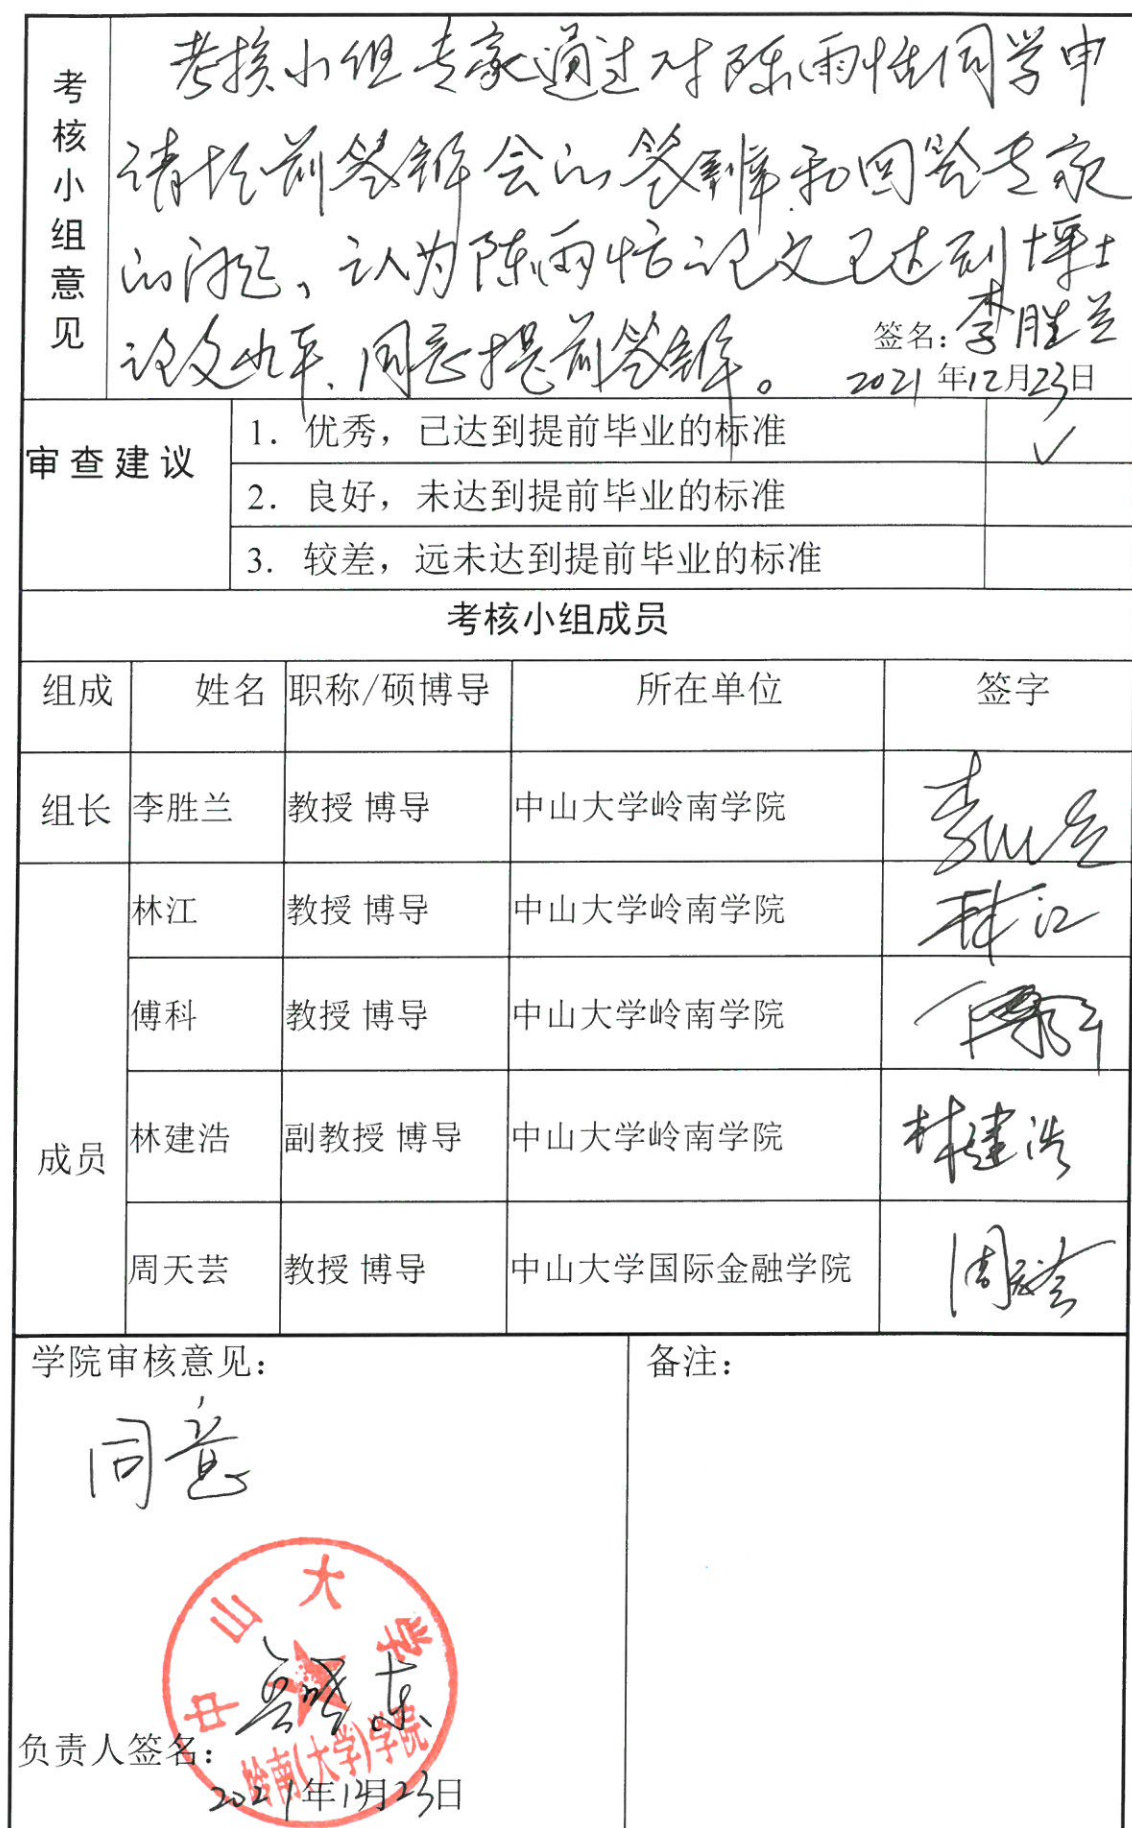 考核小组意见
考核小组专家通过对陈雨恬同学申
请提前答辩会的答辩和回答专家
的问题，认为陈雨恬论文已达到博士
论文水平，同意提前答辩。
签名：李胜兰
2021年12月23日
审查建议
1. 优秀，已达到提前毕业的标准 ✓
2. 良好，未达到提前毕业的标准
3. 较差，远未达到提前毕业的标准
考核小组成员
组成 姓名 职称/硕博导 所在单位 签字
组长 李胜兰 教授 博导 中山大学岭南学院 李胜兰
成员
林江 教授 博导 中山大学岭南学院 林江
傅科 教授 博导 中山大学岭南学院 傅科
林建浩 副教授 博导 中山大学岭南学院 林建浩
周天芸 教授 博导 中山大学国际金融学院 周天芸
学院审核意见：
同意
备注：
中山大学
岭南(大学)学院
负责人签名：
2021年12月23日